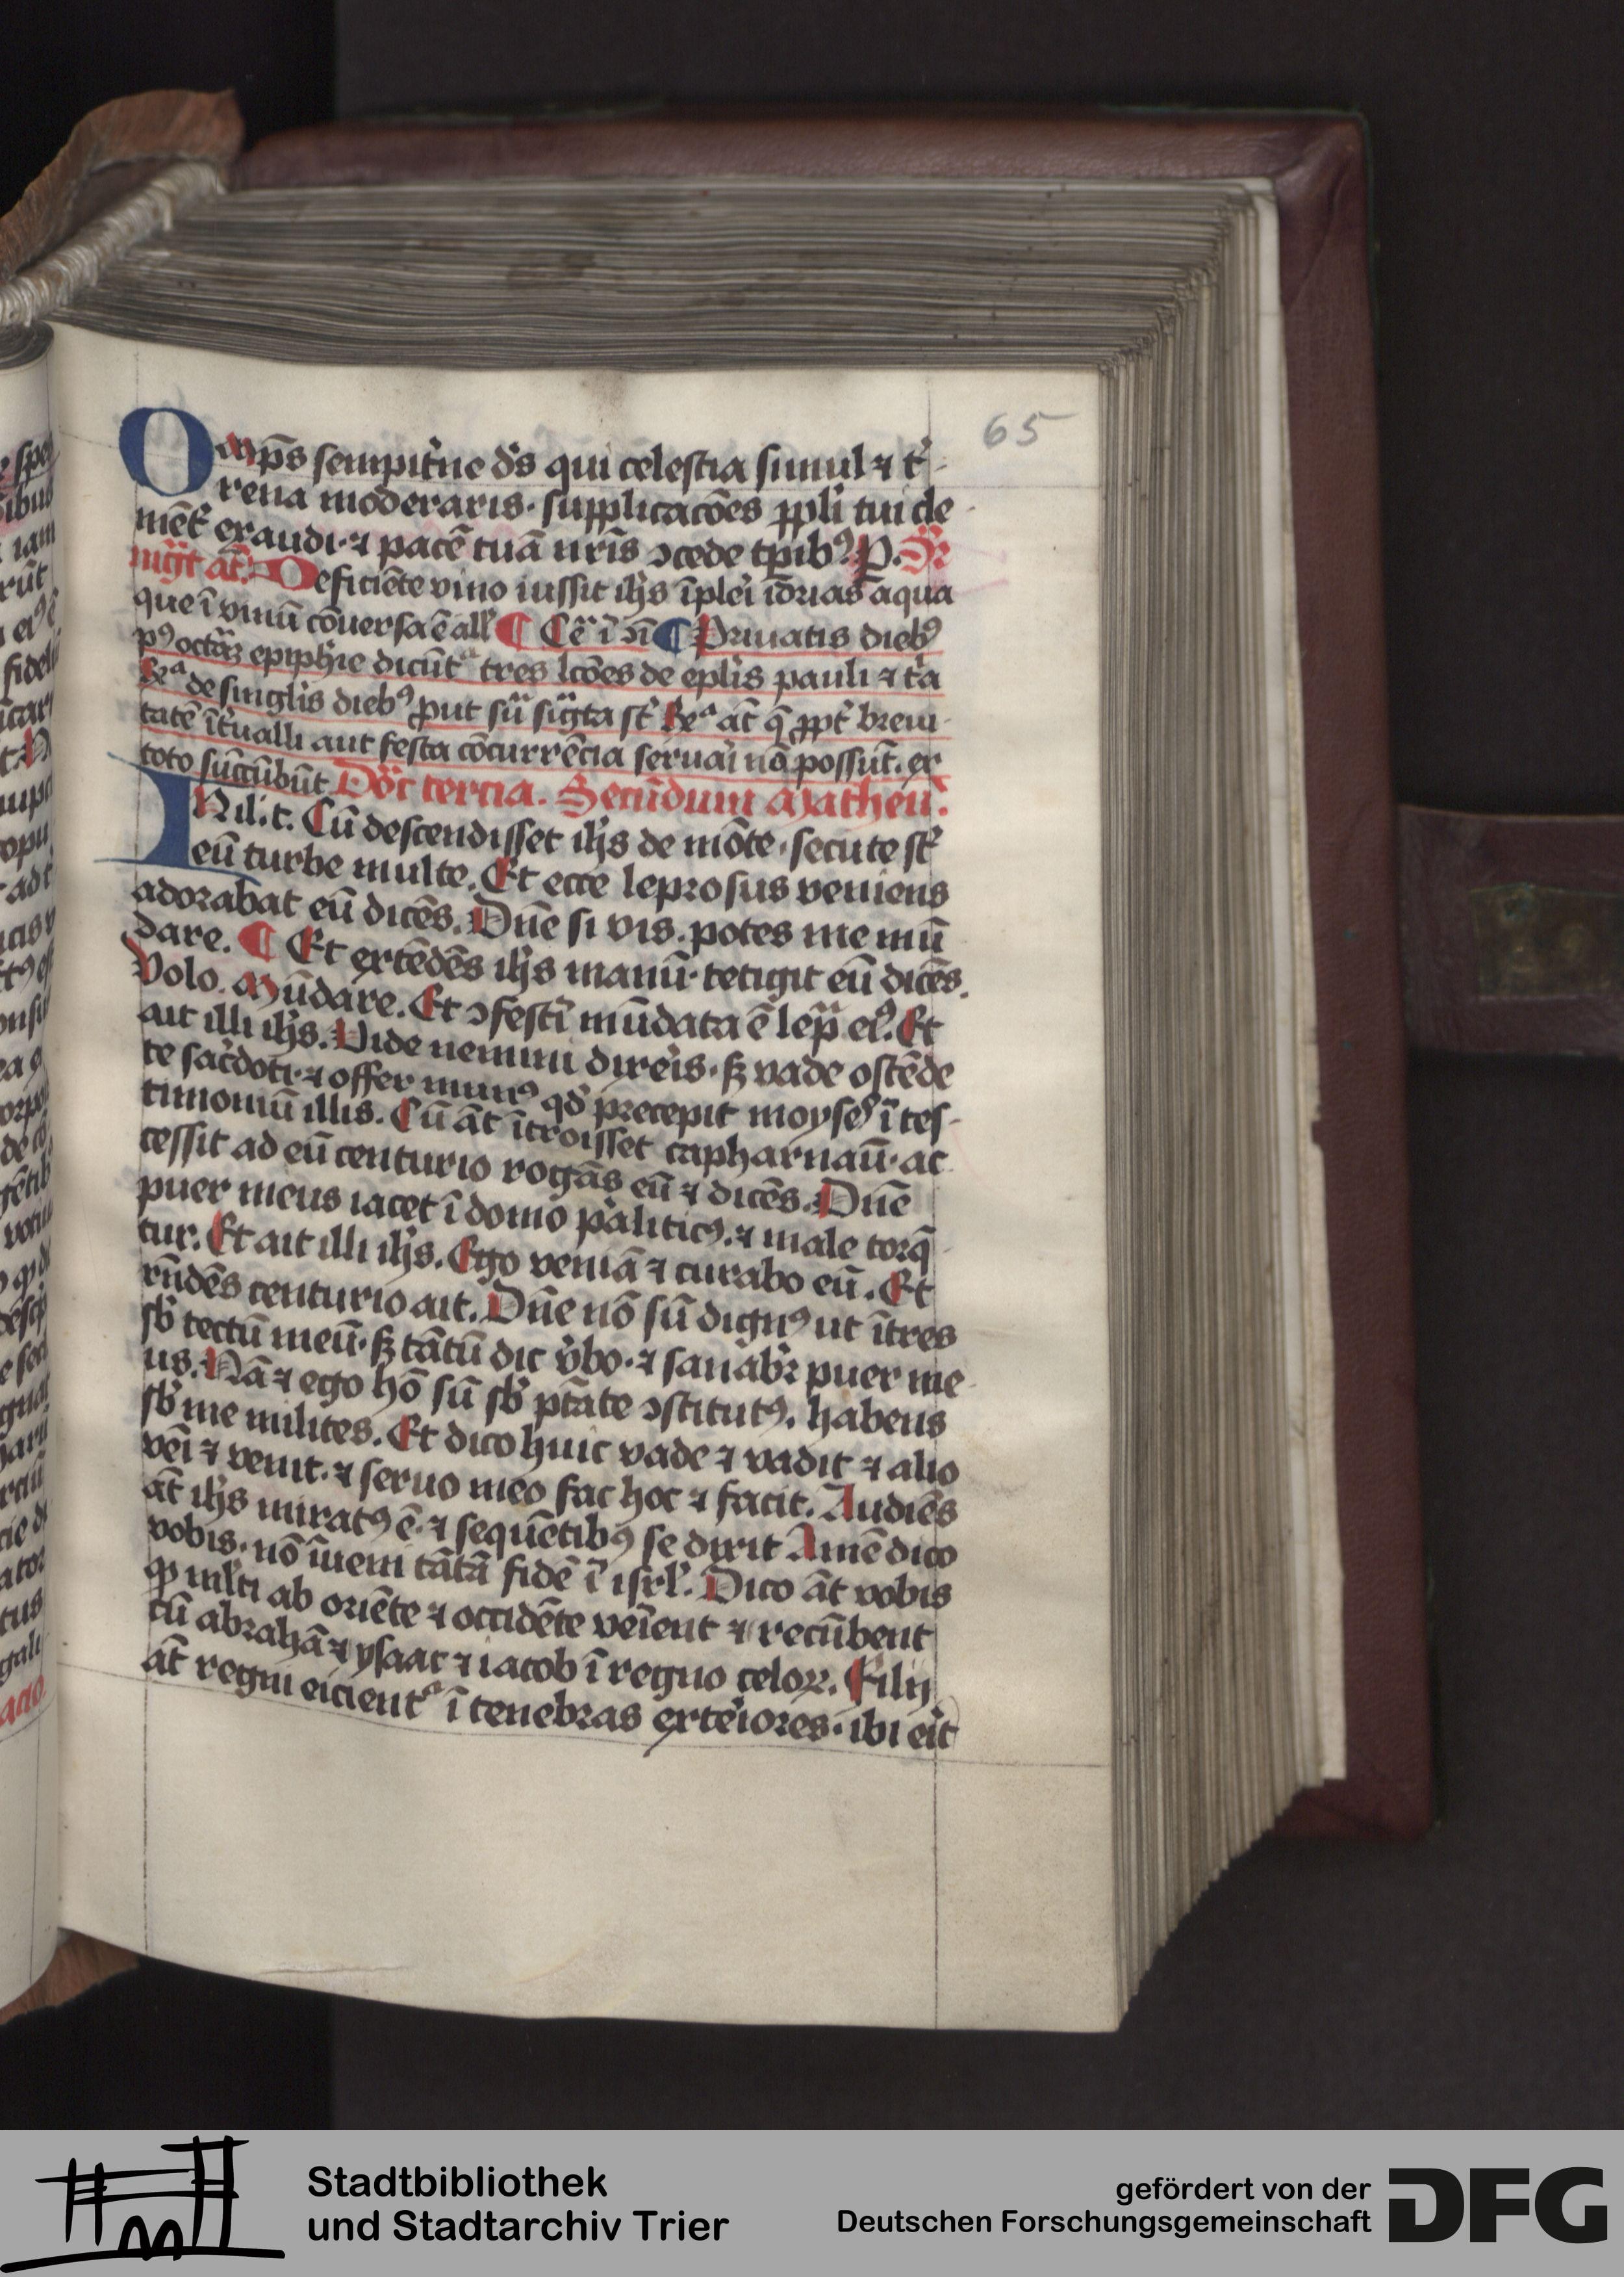 65
Omp̄s sempit̓ne d̄s qui celestia simul ⁊ t̓
rena moderaris· supplicacōes ppli tui cle
mēt̓ exaudi·⁊ pacē tuā nr̄is ɔcede tp̄ibꝰ. P.
Deficiēte vino iussit ih̄s īplei īdrias aqua
que ī vinū cōuersa ē all̓ ¶ ¶ Priuatis diebꝰ
pꝰ octā epiph̄ie dicūt tres lc̄oes de ep̄lis pauli ⁊ t̓a
feᵃ de singl̓is diebꝰ put sū sig̓ta st̓ feᵃ āt q̄ ppt̓ breui
tatē īt̓ualli aut festa cōcurrēcia seruai nō possūt. ex
toto succūbūt tercia. Secundum Matheū.
IN il̓. t. Cū descendisset ih̄s de mōte· secute st̓
eū turbe multe. Et ecce leprosus veniens
adorabat eū dicēs. Dn̄e si vis. potes me mū
dare. ¶ Et extēdēs ih̄s manū· tetigit eū dicēs.
Volo. Mūdare. Et ɔfestī mūdata ē lep̄ eiꝰ. Et
ait illi ih̄s. Vide nemini dixeis· sꝫ vade ostēde
te sac̓doti·⁊ offer munꝰ qd̓ precepit moyses ī tes-
timoniū illis. Cū āt ītroisset capharnaū· ac
cessit ad eū centurio rogās eū ⁊ dicēs. Dn̄e
puer meus iacet ī domo p̓aliticꝰ. ⁊ male torq̄
tur. Et ait illi ih̄s. Ego veniā ⁊ curabo eū. Et
rn̄dēs centurio ait. Dn̄e nō sū dignꝰ ut ītres
sb̓ tectū meū· sꝫ tātū dic v̓bo·⁊ sanabr̓ puer me
us. Nā ⁊ ego hō sū sb̓ ptāte ɔstitutꝰ. habens
sb̓ me milites. Et dico huic vade ⁊ vadit ⁊ alio
veī ⁊ venit·⁊ seruo meo fac hoc ⁊ facit. Audiēs
āt ih̄s miratꝰ ē·⁊ sequētibꝰ se dixit Amē dico
vobis· nō īueni tātā fidē ī isrl̓. Dico āt vobis
ꝙ ml̓ti ab oriēte ⁊ occidēte veīent ⁊ recūbent
cū abrahā ⁊ ysaac ⁊ iacob ī regno celoꝝ. Filij
āt regni eicient̓ ī tenebras exteiores· ibi eit
Stadtbibliothek
und Stadtarchiv Trier
gefördert von der
Deutschen Forschungsgemeinschaft
DFG